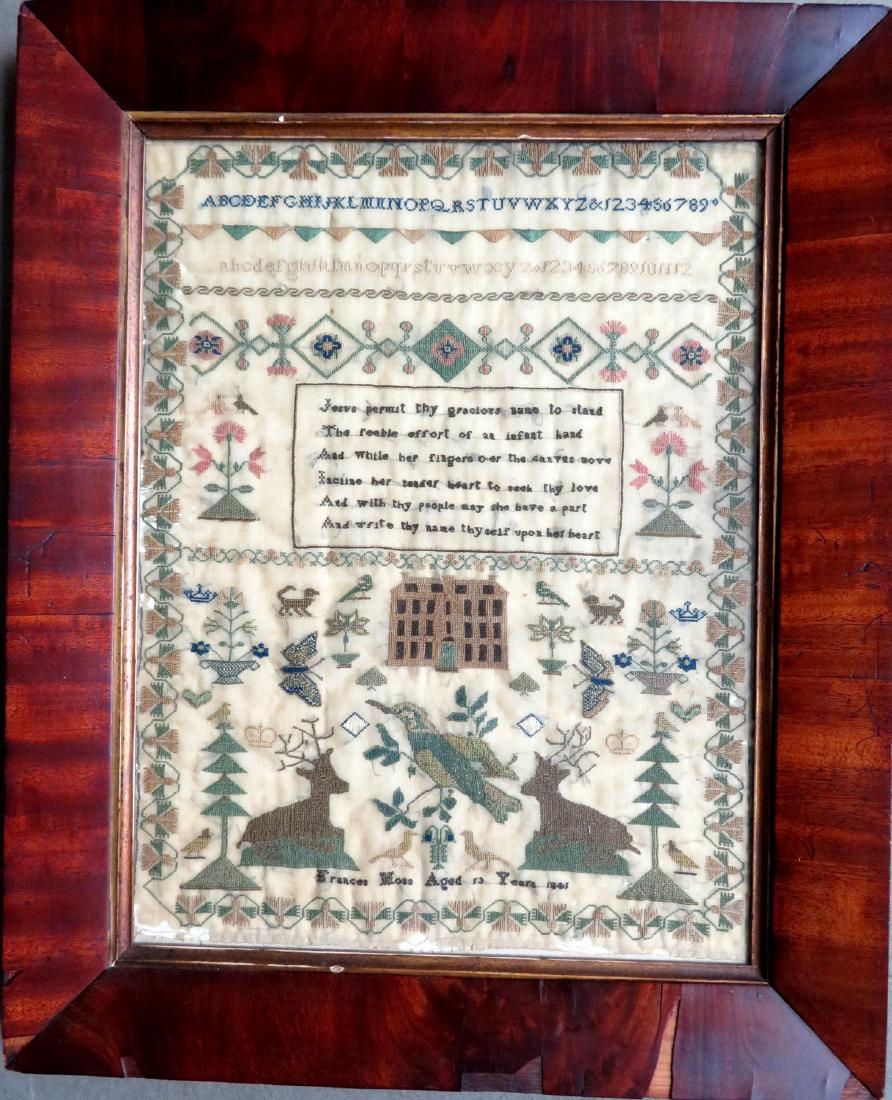 ABCDEFGHIJKLMNOPQRSTUVWXYZ&123456789
abcdefghiklmnopqrstuvwxyz 123456789101112
Jesus permit thy gracious name to stand
The feeble effort of an infant hand
And while her fingers oer the canvas move
Incline her tender heart to seek thy love
And with thy people may she have a part
And write thy name thyself upon her heart
Frances Moss Aged 13 Years